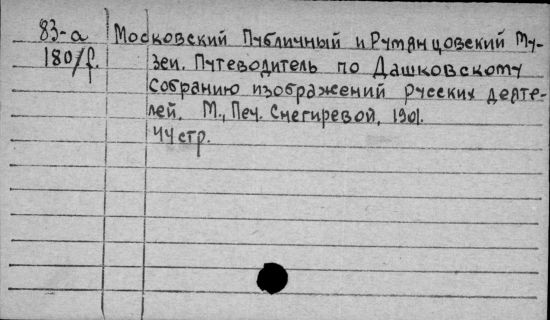 83-а Московский Публичный и Румянцовский Му-
180/f. зеи. Путеводитель по Дашковскому
собранию изображений русских деяте-
лей. М., Печ. Снегиревой, 1901.
44 стр.